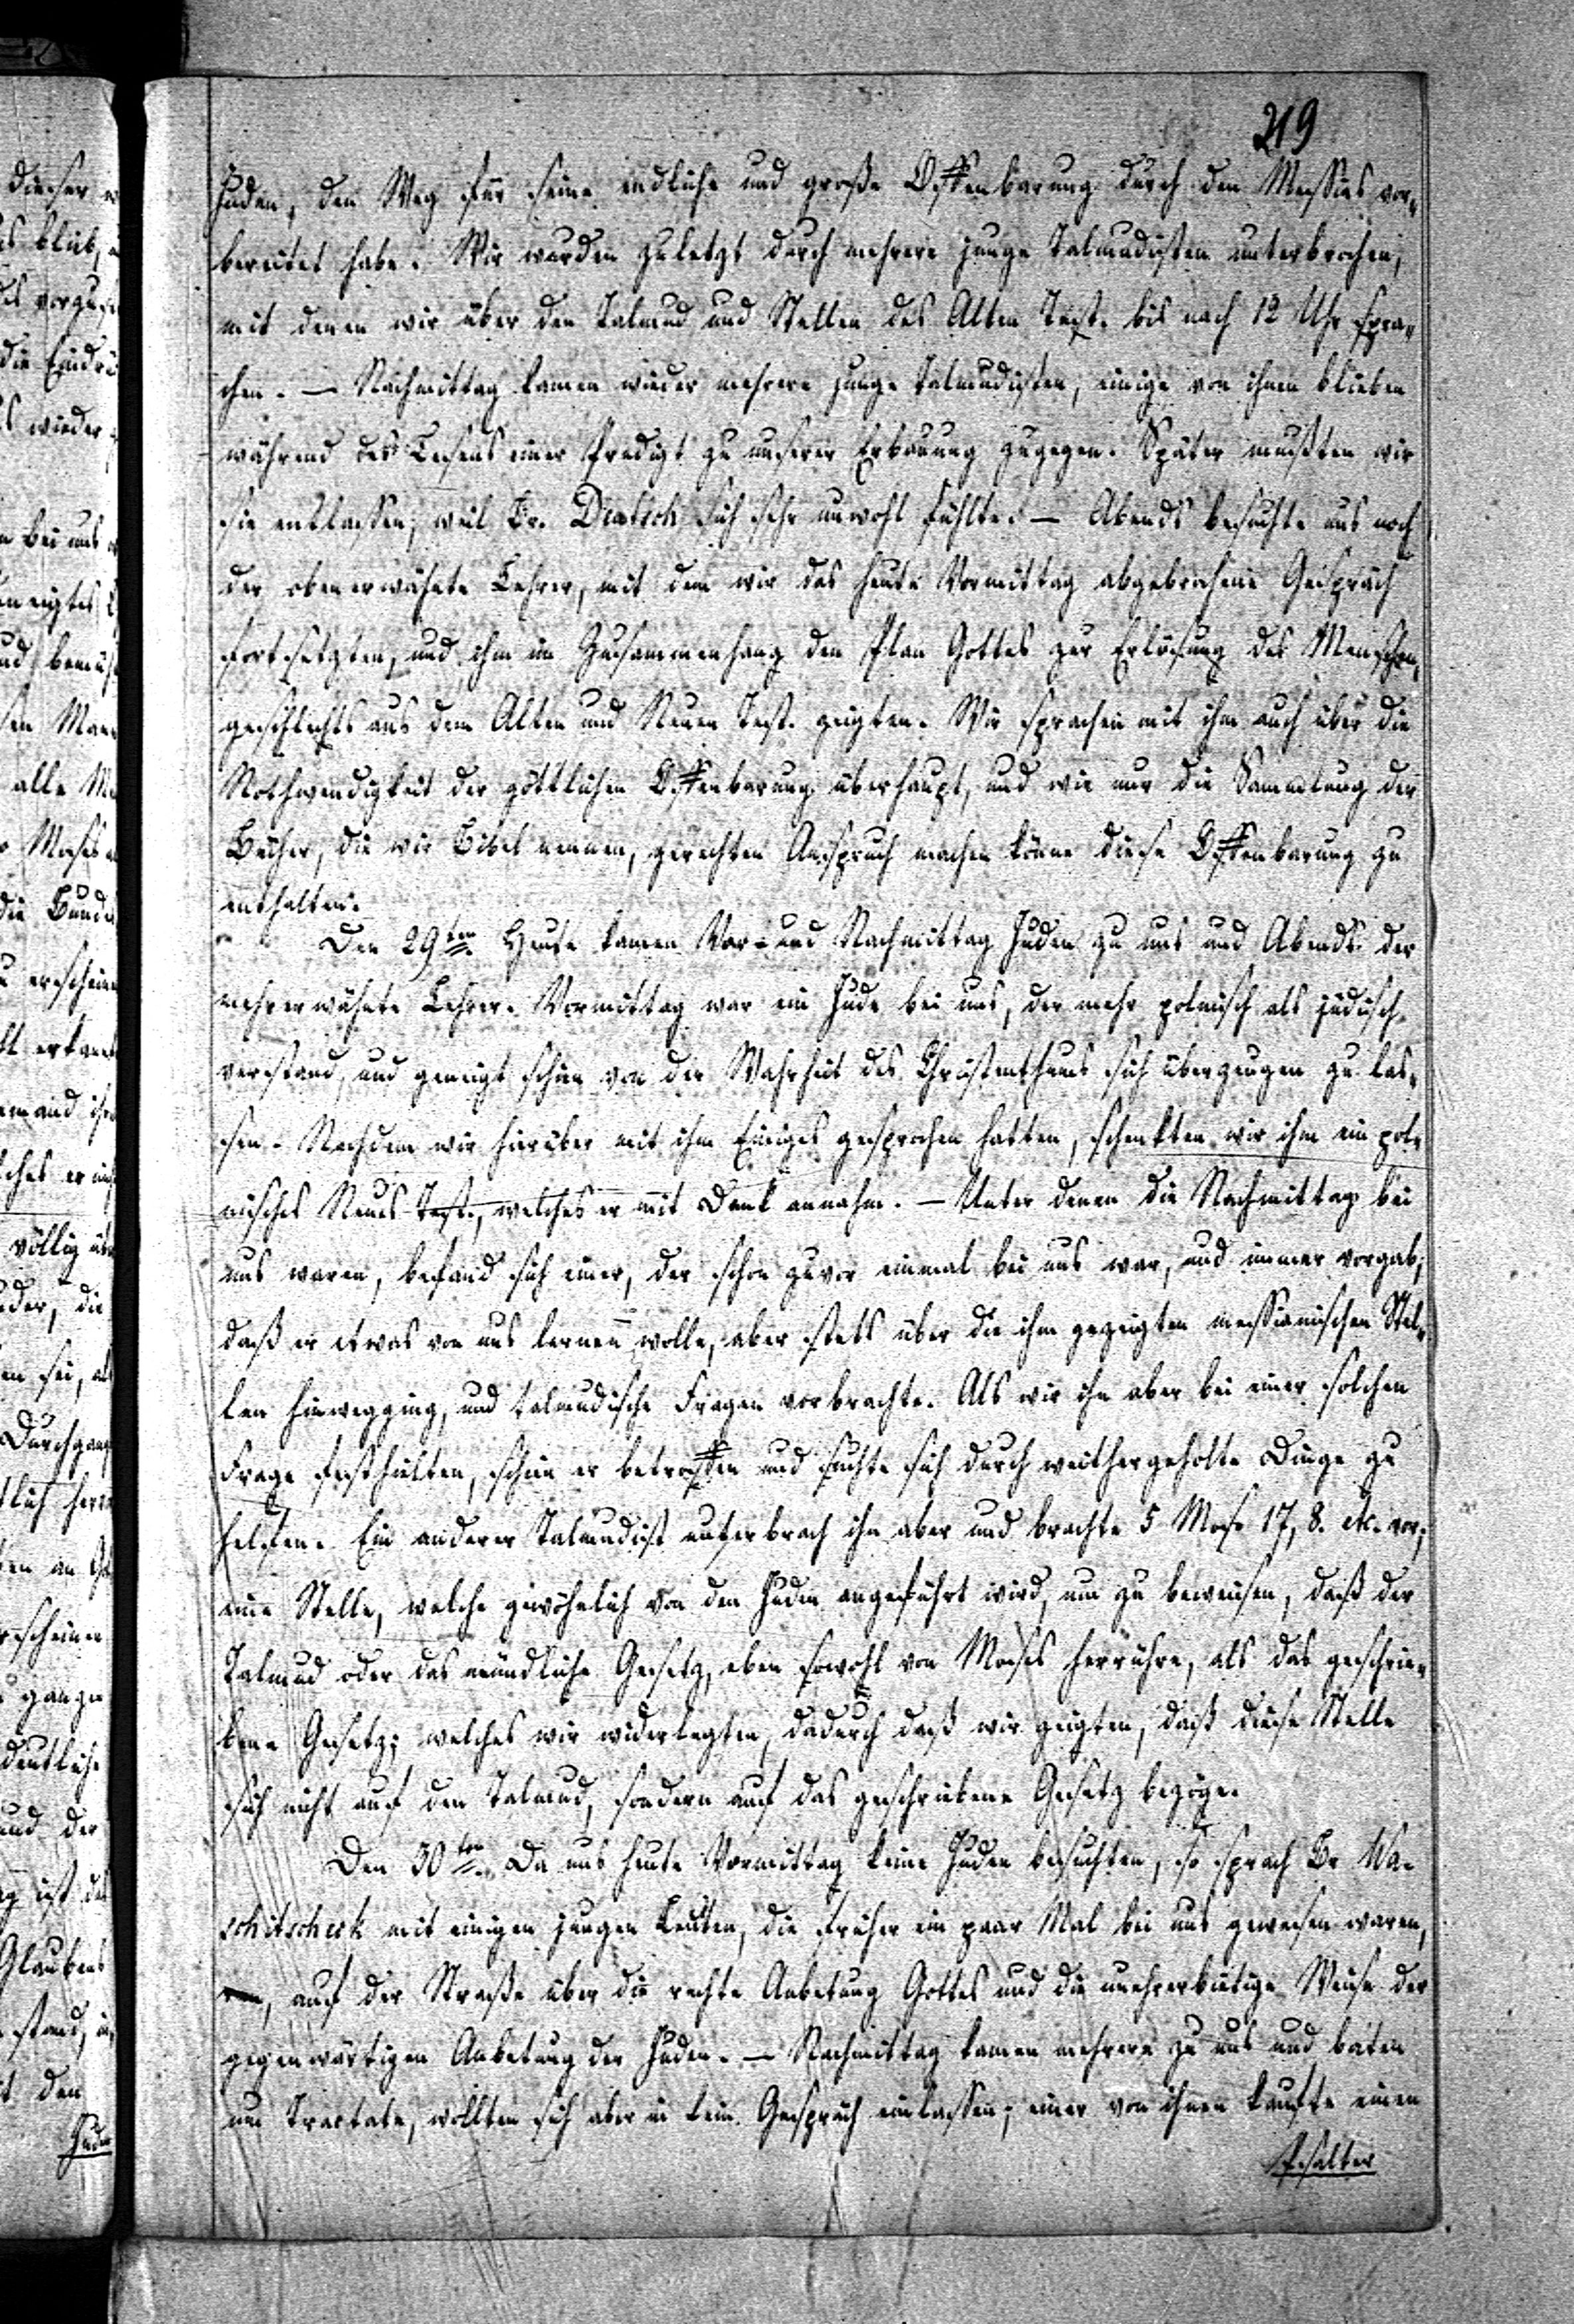 219
Juden, den Weg für seine endliche und große Offenbarung durch den Messias vor-
bereitet habe. Wir wurden zuletzt durch mehrere junge Talmudisten unterbrochen,
mit denen wir über den Talmud und Stellen des Alten Test. bis nach 12 Uhr spra-
chen. — Nachmittag kamen wieder mehrere junge Talmudisten, einige von ihnen blieben
während des Lesens einer Predigt zu unserer Erbauung zugegen. Später mußten wir
sie entlassen, weil Br. Diatsch sich sehr unwohl fühlte. — Abends besuchte uns noch
der obenerwähnte Lehrer, mit dem wir das heute Vormittag abgebrochene Gespräch
fortsetzten, und ihm im Zusammenhang den Plan Gottes zur Erlösung des Menschen-
geschlechts aus dem Alten und Neuen Test. zeigten. Wir sprachen mit ihm auch über die
Nothwendigkeit der göttlichen Offenbarung überhaupt, und wie nur die Sammlung der
Bücher, die wir Bibel nennen, gerechten Anspruch machen könne diese Offenbarung zu
enthalten.
Den 29ten Heute kamen Vor- und Nachmittag Juden zu uns und Abends der
mehrerwähnte Lehrer. Vormittag war ein Jude bei uns, der mehr polnisch als jüdisch
verstand, und geneigt schien von der Wahrheit des Christenthums sich überzeugen zu las-
sen. Nachdem wir hierüber mit ihm Einiges gesprochen hatten, schenkten wir ihm ein pol-
nisches Neues Test., welches er mit Dank annahm. — Unter denen die Nachmittag bei
uns waren, befand sich einer, der schon zuvor einmal bei uns war, und immer vorgab,
daß er etwas von uns lernen wolle, aber stets über die ihm gezeigten messianischen Stel-
len hinwegging, und talmudische Fragen vorbrachte. Als wir ihn aber bei einer solchen
Frage festhielten, schien er betroffen und suchte sich durch weithergeholte Dinge zu
helfen. Ein anderer Talmudist unterbrach ihn aber und brachte 5 Mose 17, 8. etc. vor,
eine Stelle, welche gewöhnlich von den Juden angeführt wird, um zu beweisen, daß der
Talmud oder das mündliche Gesetz, eben sowohl von Moses herrühre, als das geschrie-
bene Gesetz; welches wir widerlegten, dadurch daß wir zeigten, daß diese Stelle
sich nicht auf den Talmud, sondern auf das geschriebene Gesetz bezöge.
Den 30ten Da uns heute Vormittag keine Juden besuchten, so sprach Br Wa-
schitscheck mit einigen jungen Leuten, die früher ein paar Mal bei uns gewesen waren,
auf der Straße über die rechte Anbetung Gottes und die unehrerbietige Weise der
gegenwärtigen Anbetung der Juden. — Nachmittag kamen mehrere zu uns und baten
um Tractate, wollten sich aber in kein Gespräch einlassen; einer von ihnen kaufte einen
Psalter